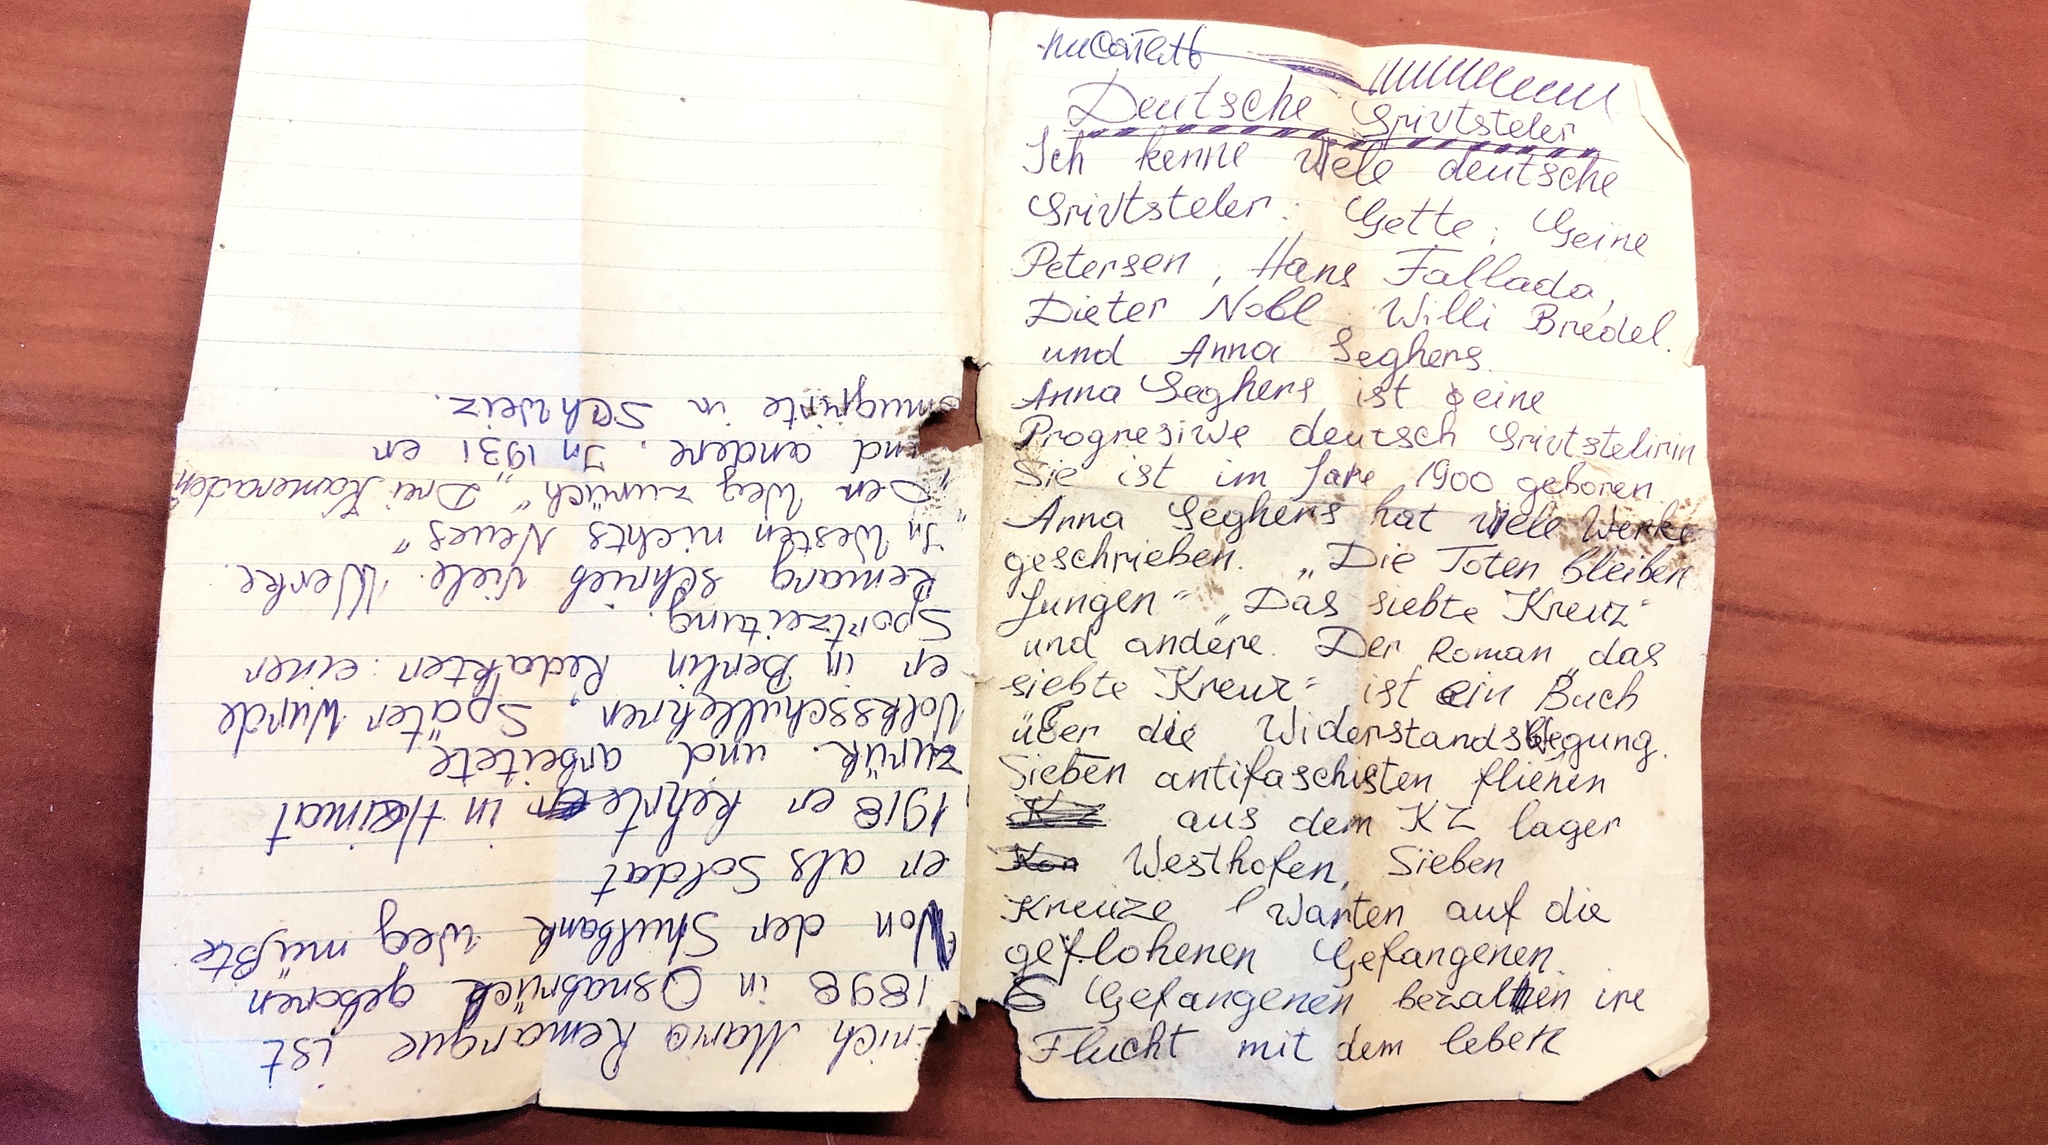 писатель
Deutsche Srivtsteler
Ich kenne viele deutsche
Srivtsteler: Gette, Geine
Petersen, Hans Fallada,
Dieter Nobl, Willi Bredel.
und Anna Seghers.
Anna Seghers ist eine
Progresiwe deutsch Srivtstelirin
Sie ist im Jare 1900 geboren.
Anna Seghers hat viele Werke
geschrieben. „Die Toten bleiben
Jungen“ „Das siebte Kreuz“
und andere. Der Roman „das
siebte Kreuz“ ist ein Buch
über die Widerstandsbewegung.
Sieben antifaschisten fliehen
aus dem KZ lager
Westhofen, Sieben
Kreuze warten auf die
geflohenen Gefangenen.
6 Gefangenen bezalten ire
Flucht mit dem leben
Erich Maria Remarque ist
1898 in Osnabrück geboren
Von der Shulbank weg müßte
er als Soldat
1918 er kehrte in Heimat
zurük. und arbeitete
Volksschullehrer. Später wurde
er in Berlin Redakter einer
Sportzeitung.
Remarq schrieb viele Werke.
„In Westen nichts Neues“
„Den Weg zurück“ „Drei Kameraden“
und andere. In 1931 er
emugrirte in Schweiz.